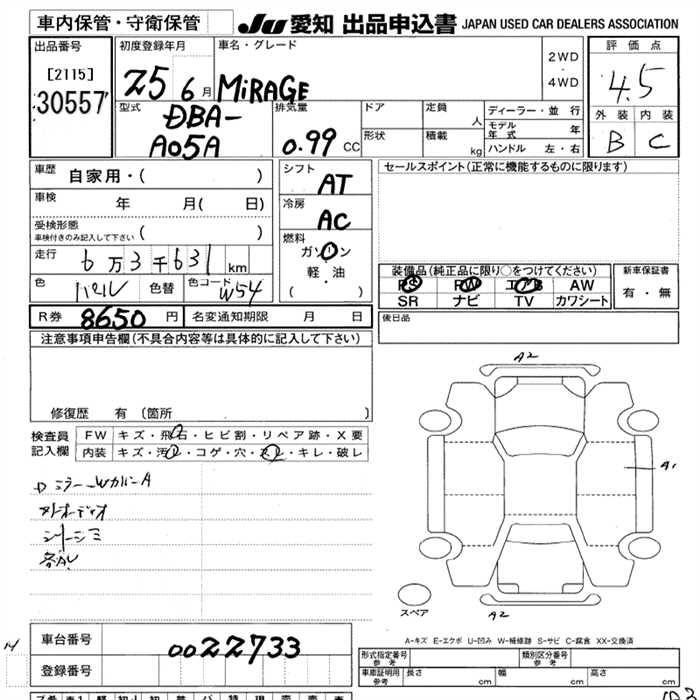 車内保管・守衛保管
JU 愛知 出品申込書 JAPAN USED CAR DEALERS ASSOCIATION
出品番号
[2115]
30557
初度登録年月
25 6 月
車名・グレード
MiRAGE
2WD
・
4WD
評価点
4.5
外装 内装
B C
型式
DBA-
A05A
排気量
0.99 CC
ドア
形状
定員
人
積載
kg
ディーラー・並行
モデル年式 年
ハンドル 左・右
車歴
自家用・( )
車検
年 月( 日)
受検形態
車検付きのみ記入して下さい ( )
走行
6万3千631 km
色
パール
色替
色コード
W54
シフト
AT
冷房
AC
燃料
ガソリン
軽・油
( )
セールスポイント(正常に機能するものに限ります)
装備品(純正品に限り○をつけてください)
PS PW エアB AW
SR ナビ TV カワシート
新車保証書
有・無
R券 8650 円
名変通知期限 月 日
後日品
注意事項申告欄(不具合内容等は具体的に記入して下さい)
修復歴 有 (箇所 )
検査員
記入欄
FW キズ・飛石・ヒビ割・リペア跡・X要
内装 キズ・汚れ・コゲ・穴・スレ・キレ・破レ
ミラーWカバーA
シートシミ
A2
A1
スペア
A2
A-キズ E-エクボ U-凹み W-補修跡 S-サビ C-腐食 XX-交換済
車台番号
0022733
登録番号
形式指定番号
参考
類別区分番号
参考
車庫証明用
参考
長さ cm 幅 cm 高さ cm